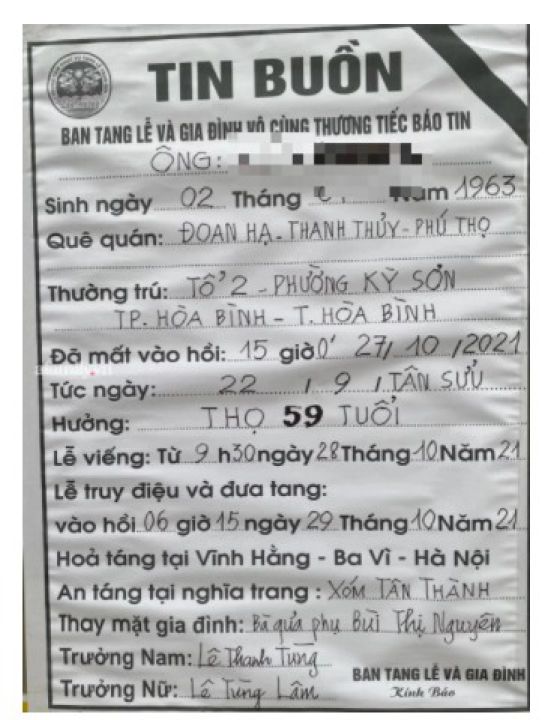 TIN BUỒN
BAN TANG LỄ VÀ GIA ĐÌNH VÔ CÙNG THƯƠNG TIẾC BÁO TIN
ÔNG:
Sinh ngày 02 Tháng Năm 1963
Quê quán: ĐOAN HẠ - THANH THỦY - PHÚ THỌ
Thường trú: TỔ 2 - PHƯỜNG KỲ SƠN
TP. HÒA BÌNH - T. HÒA BÌNH
Đã mất vào hồi: 15 giờ 0' 27/10/2021
Tức ngày: 22 / 9 / TÂN SỬU
Hưởng: THỌ 59 TUỔI
Lễ viếng: Từ 9 h30 ngày 28 Tháng 10 Năm 21
Lễ truy điệu và đưa tang:
vào hồi 06 giờ 15 ngày 29 Tháng 10 Năm 21
Hoả táng tại Vĩnh Hằng - Ba Vì - Hà Nội
An táng tại nghĩa trang: XÓM TÂN THÀNH
Thay mặt gia đình: Bà quả phụ Bùi Thị Nguyên
Trưởng Nam: Lê Thanh Tùng
Trưởng Nữ: Lê Tùng Lâm
BAN TANG LỄ VÀ GIA ĐÌNH
Kính Báo